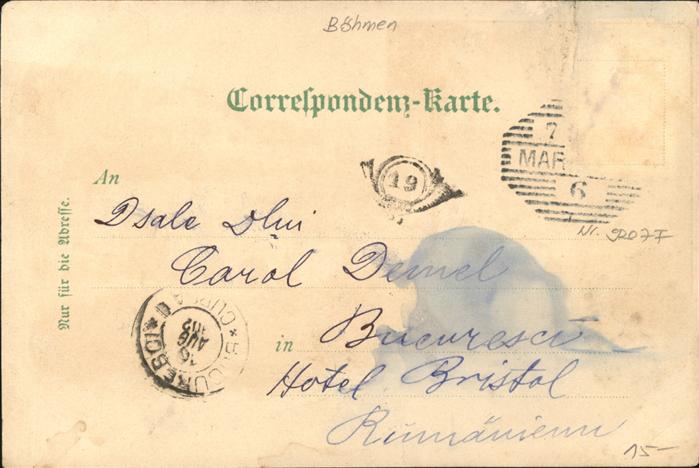 Böhmen
Correspondenz-Karte.
An
19
7
MAR
6
Nr. 9207I
Nur für die Adresse.
Dsale Dlui
Carol Demel
in Bucuresci
Hotel Bristol
Rumänienn
BUCURESCI
16
AUG
15-